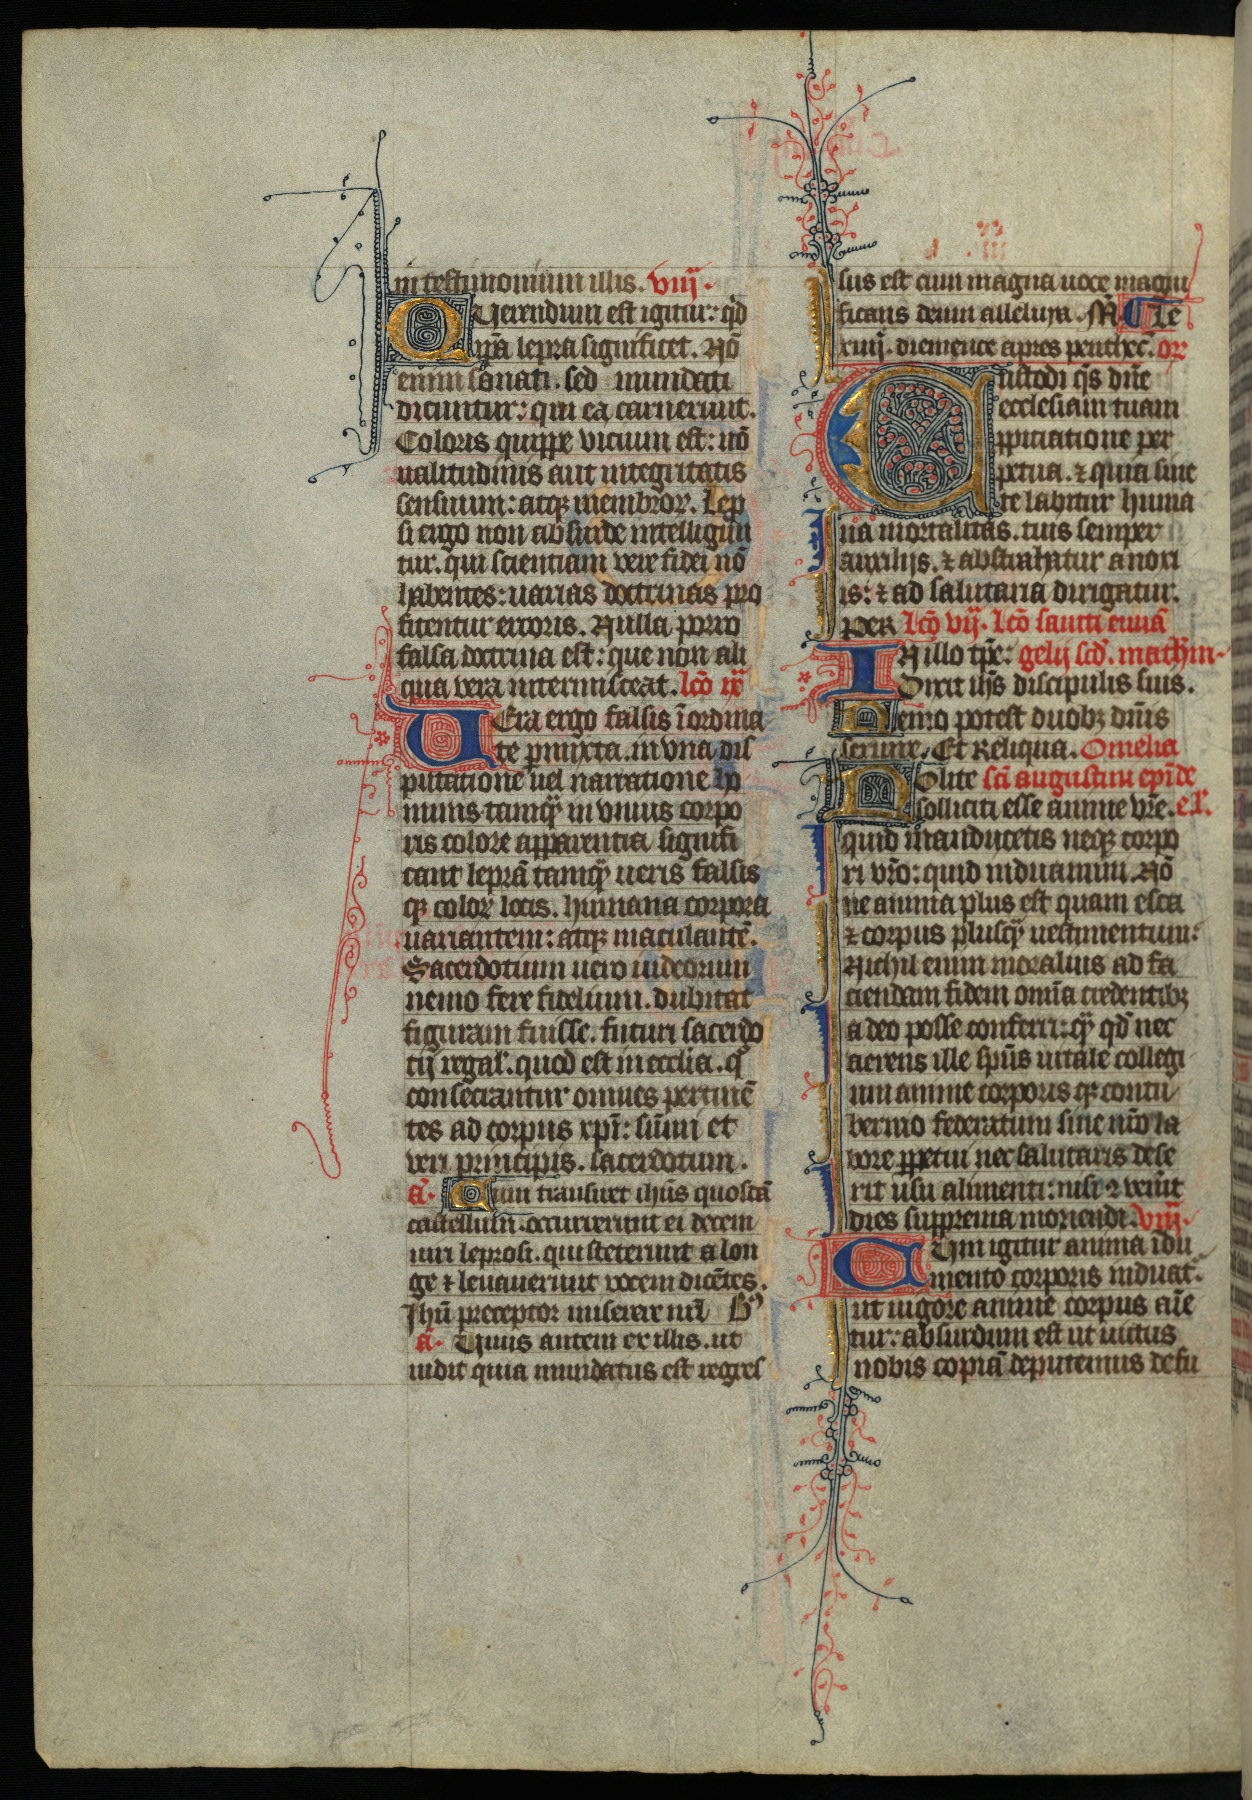 in testimonium illis. viij.
Querendum est igitur: qd̄
ip̄a lepra significet. Nō
enim sanati. sed mundati
dicuntur: qui ea caruerunt.
Coloris quippe vicium est: nō
ualitudinis aut integritatis
sensuum: atqꝫ membroꝝ. Lep
si ergo non absurde intelligun
tur. qui scientiam vere fidei nō
habentes: uarias doctrinas pro
fitentur erroris. Nulla porro
falsa doctrina est: que non ali
qua vera intermisceat. lcō ix
Vera ergo falsis īordina
te pmixta. in vna dis
putatione uel narratione ho
minis tamqȝ in vnius corpo
ris colore apparentia signifi
cant leprā tamqȝ ueris falsis
qꝫ coloꝝ locis. humana corpora
uariantem: atqꝫ maculantē.
Sacerdotium uero iudeorum
nemo fere fidelium. dubitat
figuram fuisse. futuri sacerdo
tij regal'. quod est in ecclīa. q°
consecrantur omnes pertinē
tes ad corpus xpī: sūmi et
veri principis. sacerdotum.
a. Cum transiret ihūs quoddā
castellum. occurrerunt ei decem
uiri leprosi. qui steterunt a lon
ge ⁊ leuauerunt vocem dicētes.
Jhū preceptor miserere nrī
a. Unus autem ex illis. ut
uidit quia mundatus est regres
sus est cum magna uoce magni
ficans deum alleluya. M̄. Le
xiiij. diemence apres penthec̄. or
Custodi qs̄ dn̄e
ecclesiam tuam
ꝓpiciatione per
petua. ⁊ quia sine
te labitur huma
na mortalitas. tuis semper
auxilijs. ⁊ abstrahatur a noxi
is: ⁊ ad salutaria dirigatur.
Per lcō vij. lcō sancti euuā
In illo tp̄e: gelij scd̄. math'm.
Dixit ihs̄ discipulis suis.
Nemo potest duobꝫ dn̄is
seruire. Et Reliqua. Omelia
Nolite scī augustini epī de
solliciti esse anime vr̄e. e.l'.
quid manducetis neqꝫ corpo
ri vr̄o: quid induamini. Nō
ne anima plus est quam esca
⁊ corpus plusqȝ uestimentum:
Nichil enim moralius ad fa
ciendam fidem omīa credentibꝫ
a deo posse conferri: qȝ qd̄ nec
aerens ille sp̄us uitale collegi
um anime corporis qꝫ contu
bernio federatum sine nr̄o la
bore ꝑpetui nec salutaris dese
rit usu alimenti: nisi ⁊ venit
dies supprema moriendi. viij.
Cum igitur anima īdu
mento corporis induat̄.
ut uigore anime corpus aīe
tur: absurdum est ut uictus
nobis copiā deputemus defu